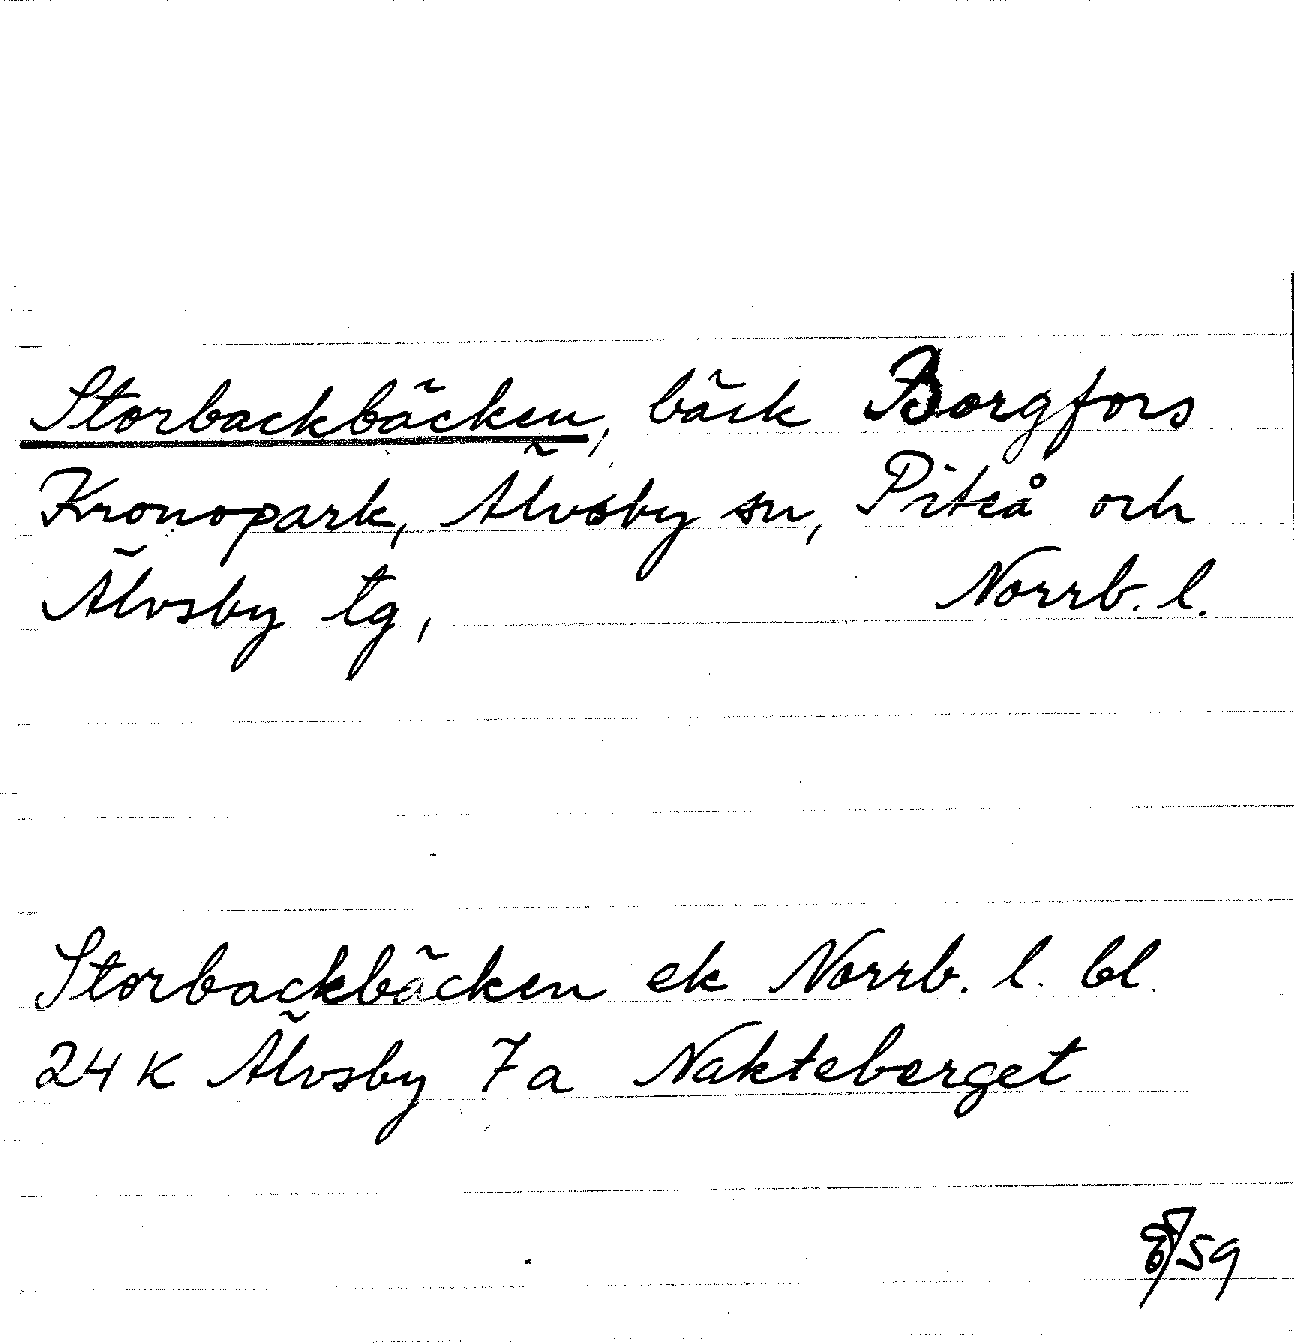 Storbackbäcken, bäck Borgfors
Kronopark, Älvsby sn, Piteå och
Älvsby tg, Norrb. l.
Storbackbäcken ek Norrb. l. bl.
24 K Älvsby 7a Nakteberget